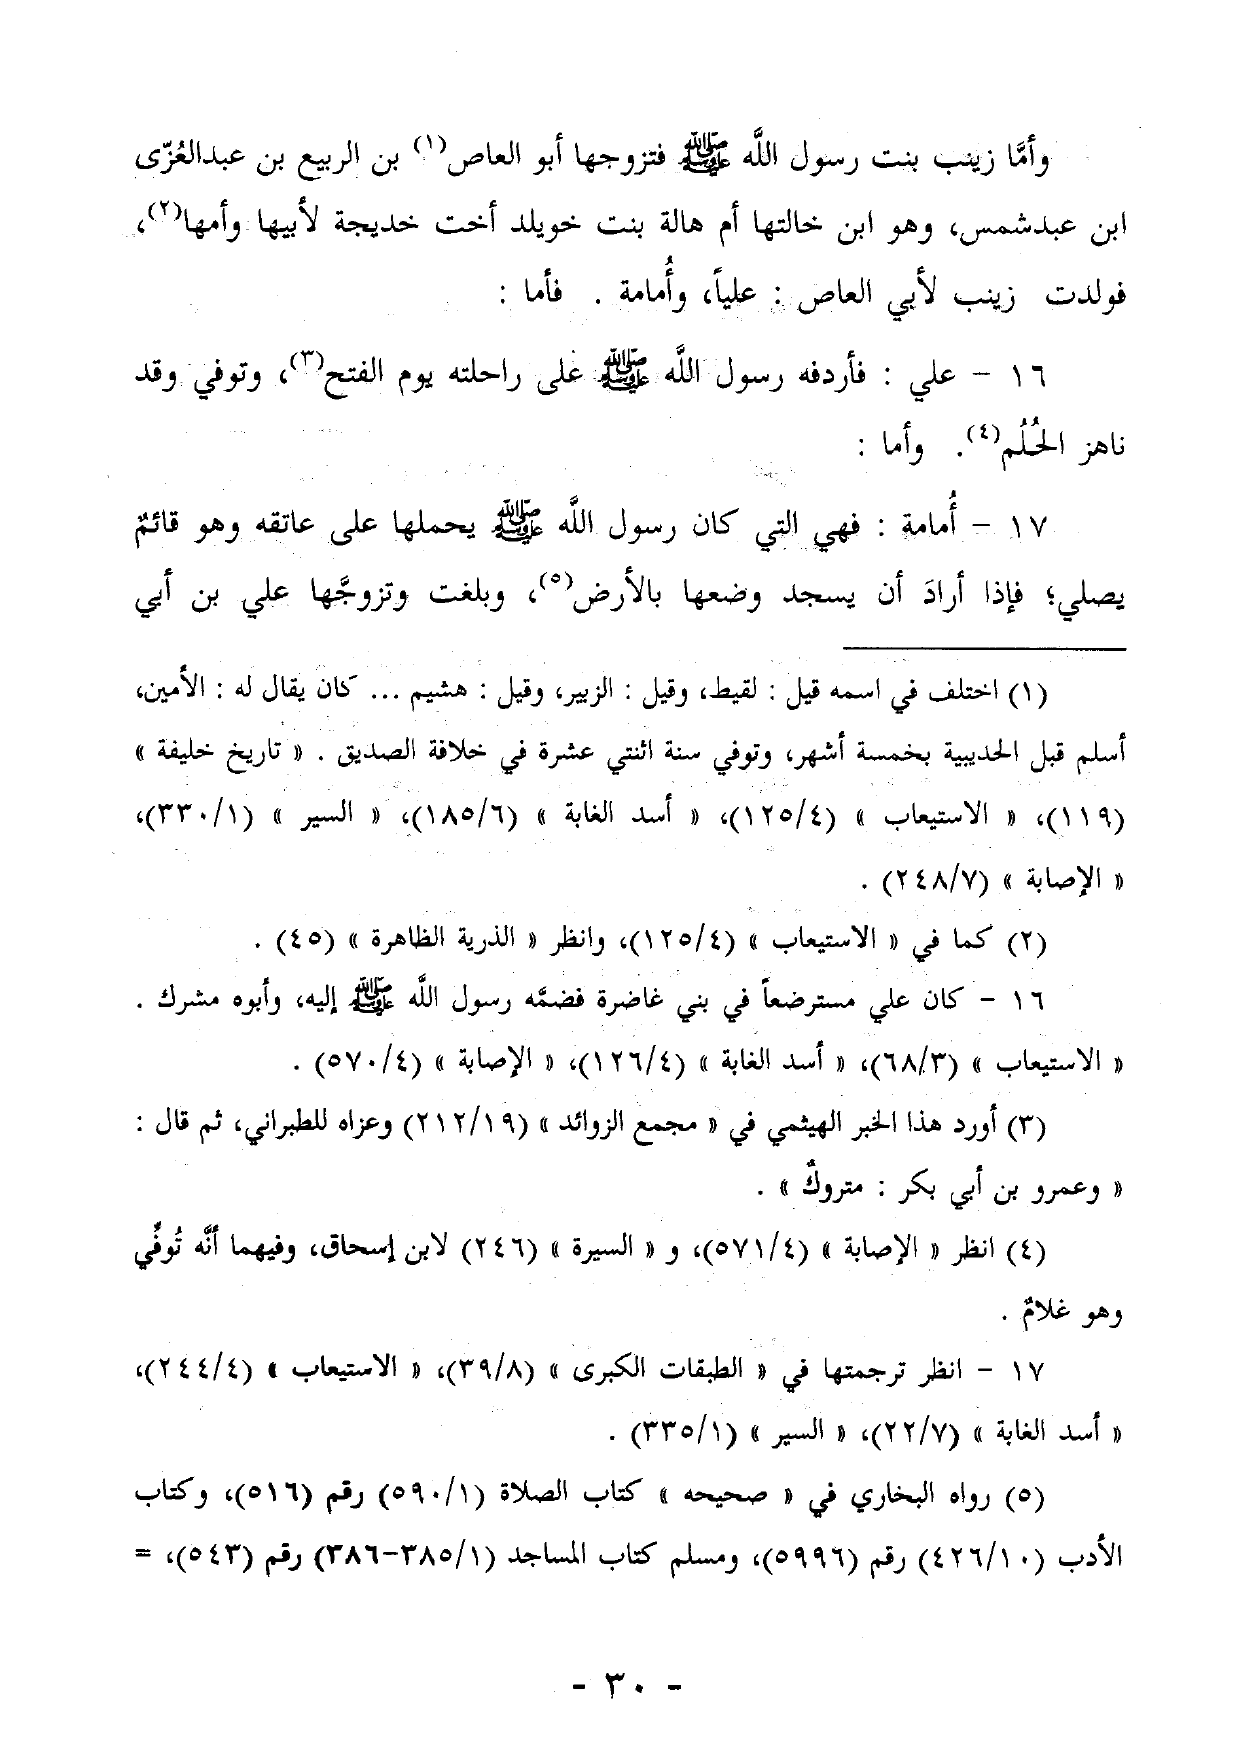 وأمَّا زينب بنت رسول اللَّه ﷺ فتزوجها أبو العاص(١) بن الربيع بن عبدالعُزّى
ابن عبدشمس، وهو ابن خالتها أم هالة بنت خويلد أخت خديجة لأبيها وأمها(٢)،
فولدت زينب لأبي العاص : علياً، وأُمامة . فأما :
١٦ - علي : فأردفه رسول اللَّه ﷺ على راحلته يوم الفتح(٣)، وتوفي وقد
ناهز الحُلُم(٤). وأما :
١٧ - أُمامة : فهي التي كان رسول اللَّه ﷺ يحملها على عاتقه وهو قائمٌ
يصلي؛ فإذا أرادَ أن يسجد وضعها بالأرض(٥)، وبلغت وتزوجَّها علي بن أبي
(١) اختلف في اسمه قيل : لقيط، وقيل : الزبير، وقيل : هشيم ... كان يقال له : الأمين،
أسلم قبل الحديبية بخمسة أشهر، وتوفي سنة اثنتي عشرة في خلافة الصديق . « تاريخ خليفة »
(١١٩)، « الاستيعاب » (١٢٥/٤)، « أسد الغابة » (١٨٥/٦)، « السير » (٣٣٠/١)،
« الإصابة » (٢٤٨/٧) .
(٢) كما في « الاستيعاب » (١٢٥/٤)، وانظر « الذرية الظاهرة » (٤٥) .
١٦ - كان علي مسترضعاً في بني غاضرة فضمَّه رسول اللَّه ﷺ إليه، وأبوه مشرك .
« الاستيعاب » (٦٨/٣)، « أسد الغابة » (١٢٦/٤)، « الإصابة » (٥٧٠/٤) .
(٣) أورد هذا الخبر الهيثمي في « مجمع الزوائد » (٢١٢/١٩) وعزاه للطبراني، ثم قال :
« وعمرو بن أبي بكر : متروكٌ » .
(٤) انظر « الإصابة » (٥٧١/٤)، و « السيرة » (٢٤٦) لابن إسحاق، وفيهما أنَّه تُوفِّي
وهو غلامٌ .
١٧ - انظر ترجمتها في « الطبقات الكبرى » (٣٩/٨)، « الاستيعاب » (٢٤٤/٤)،
« أسد الغابة » (٢٢/٧)، « السير » (٣٣٥/١) .
(٥) رواه البخاري في « صحيحه » كتاب الصلاة (٥٩٠/١) رقم (٥١٦)، وكتاب
الأدب (٤٢٦/١٠) رقم (٥٩٩٦)، ومسلم كتاب المساجد (٣٨٥/١-٣٨٦) رقم (٥٤٣)، =
- ٣٠ -